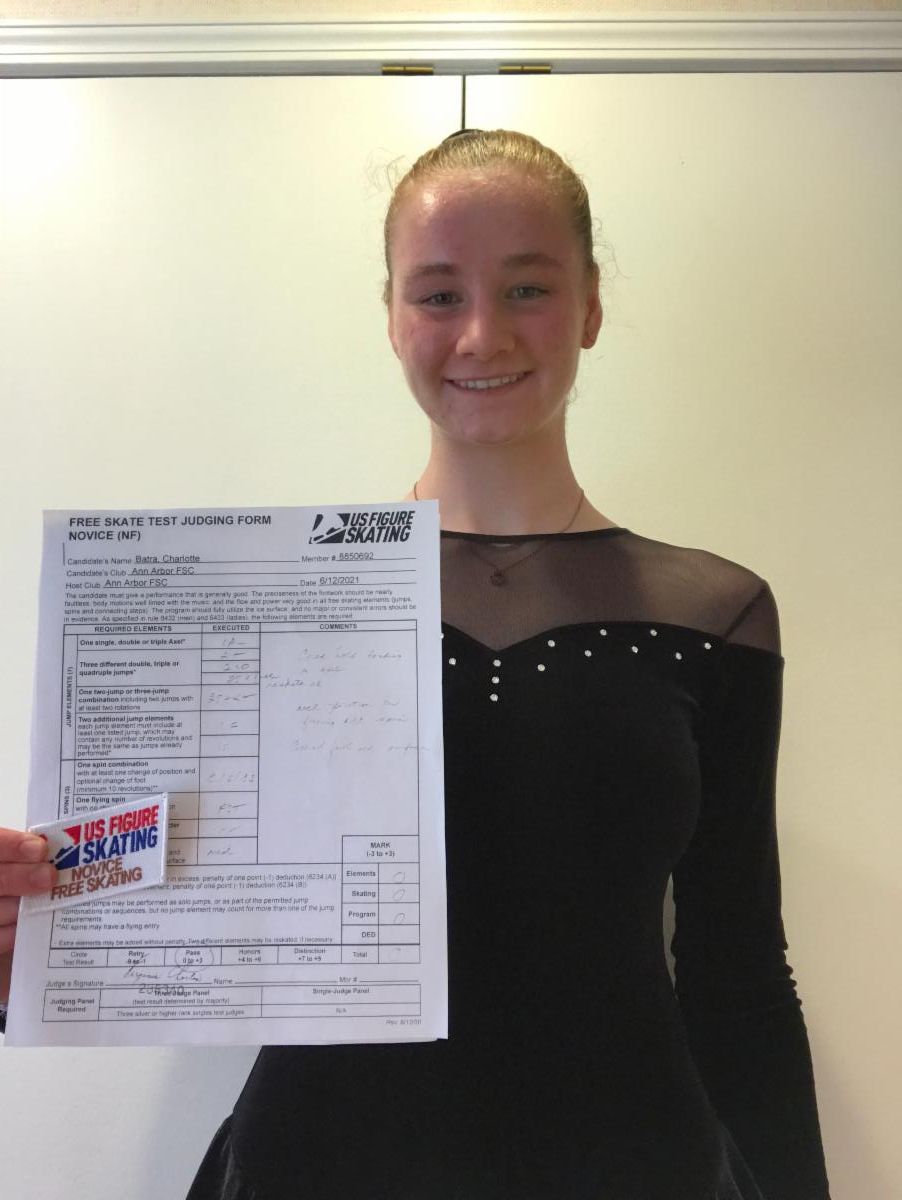 FREE SKATE TEST JUDGING FORM
NOVICE (NF)
US FIGURE
SKATING
Candidate's Name Batra, Charlotte Member # 8850692
Candidate's Club Ann Arbor FSC
Host Club Ann Arbor FSC Date 6/12/2021
The candidate must give a performance that is generally good. The preciseness of the footwork should be nearly
faultless, body motions well timed with the music, and the flow and power very good in all free skating elements (jumps,
spins and connecting steps). The program should fully utilize the ice surface, and no major or consistent errors should be
in evidence. As specified in rule 6432 (men) and 6433 (ladies), the following elements are required:
REQUIRED ELEMENTS EXECUTED COMMENTS
JUMP ELEMENTS (7)
One single, double or triple Axel* 1A
Three different double, triple or
quadruple jumps*
One two-jump or three-jump
combination including two jumps with
at least two rotations
Two additional jump elements
each jump element must include at
least one listed jump, which may
contain any number of revolutions and
may be the same as jumps already
performed*
SPINS (3)
One spin combination
with at least one change of position and
optional change of foot
(minimum 10 revolutions)**
One flying spin
with no
and
surface
US FIGURE
SKATING
NOVICE
FREE SKATING
MARK
(-3 to +3)
Elements 0
Skating 0
Program 0
DED
in excess, penalty of one point (-1) deduction (6234 (A))
penalty of one point (-1) deduction (6234 (B))
jumps may be performed as solo jumps, or as part of the permitted jump
combinations or sequences, but no jump element may count for more than one of the jump
requirements
**All spins may have a flying entry
Extra elements may be added without penalty. Two different elements may be reskated, if necessary.
Circle
Test Result Retry
-9 to -1 Pass
0 to +3 Honors
+4 to +6 Distinction
+7 to +9 Total
Judge's Signature Name Mbr #
Judging Panel
Required Three-Judge Panel
(test result determined by majority) Single-Judge Panel
Three silver or higher rank singles test judges N/A